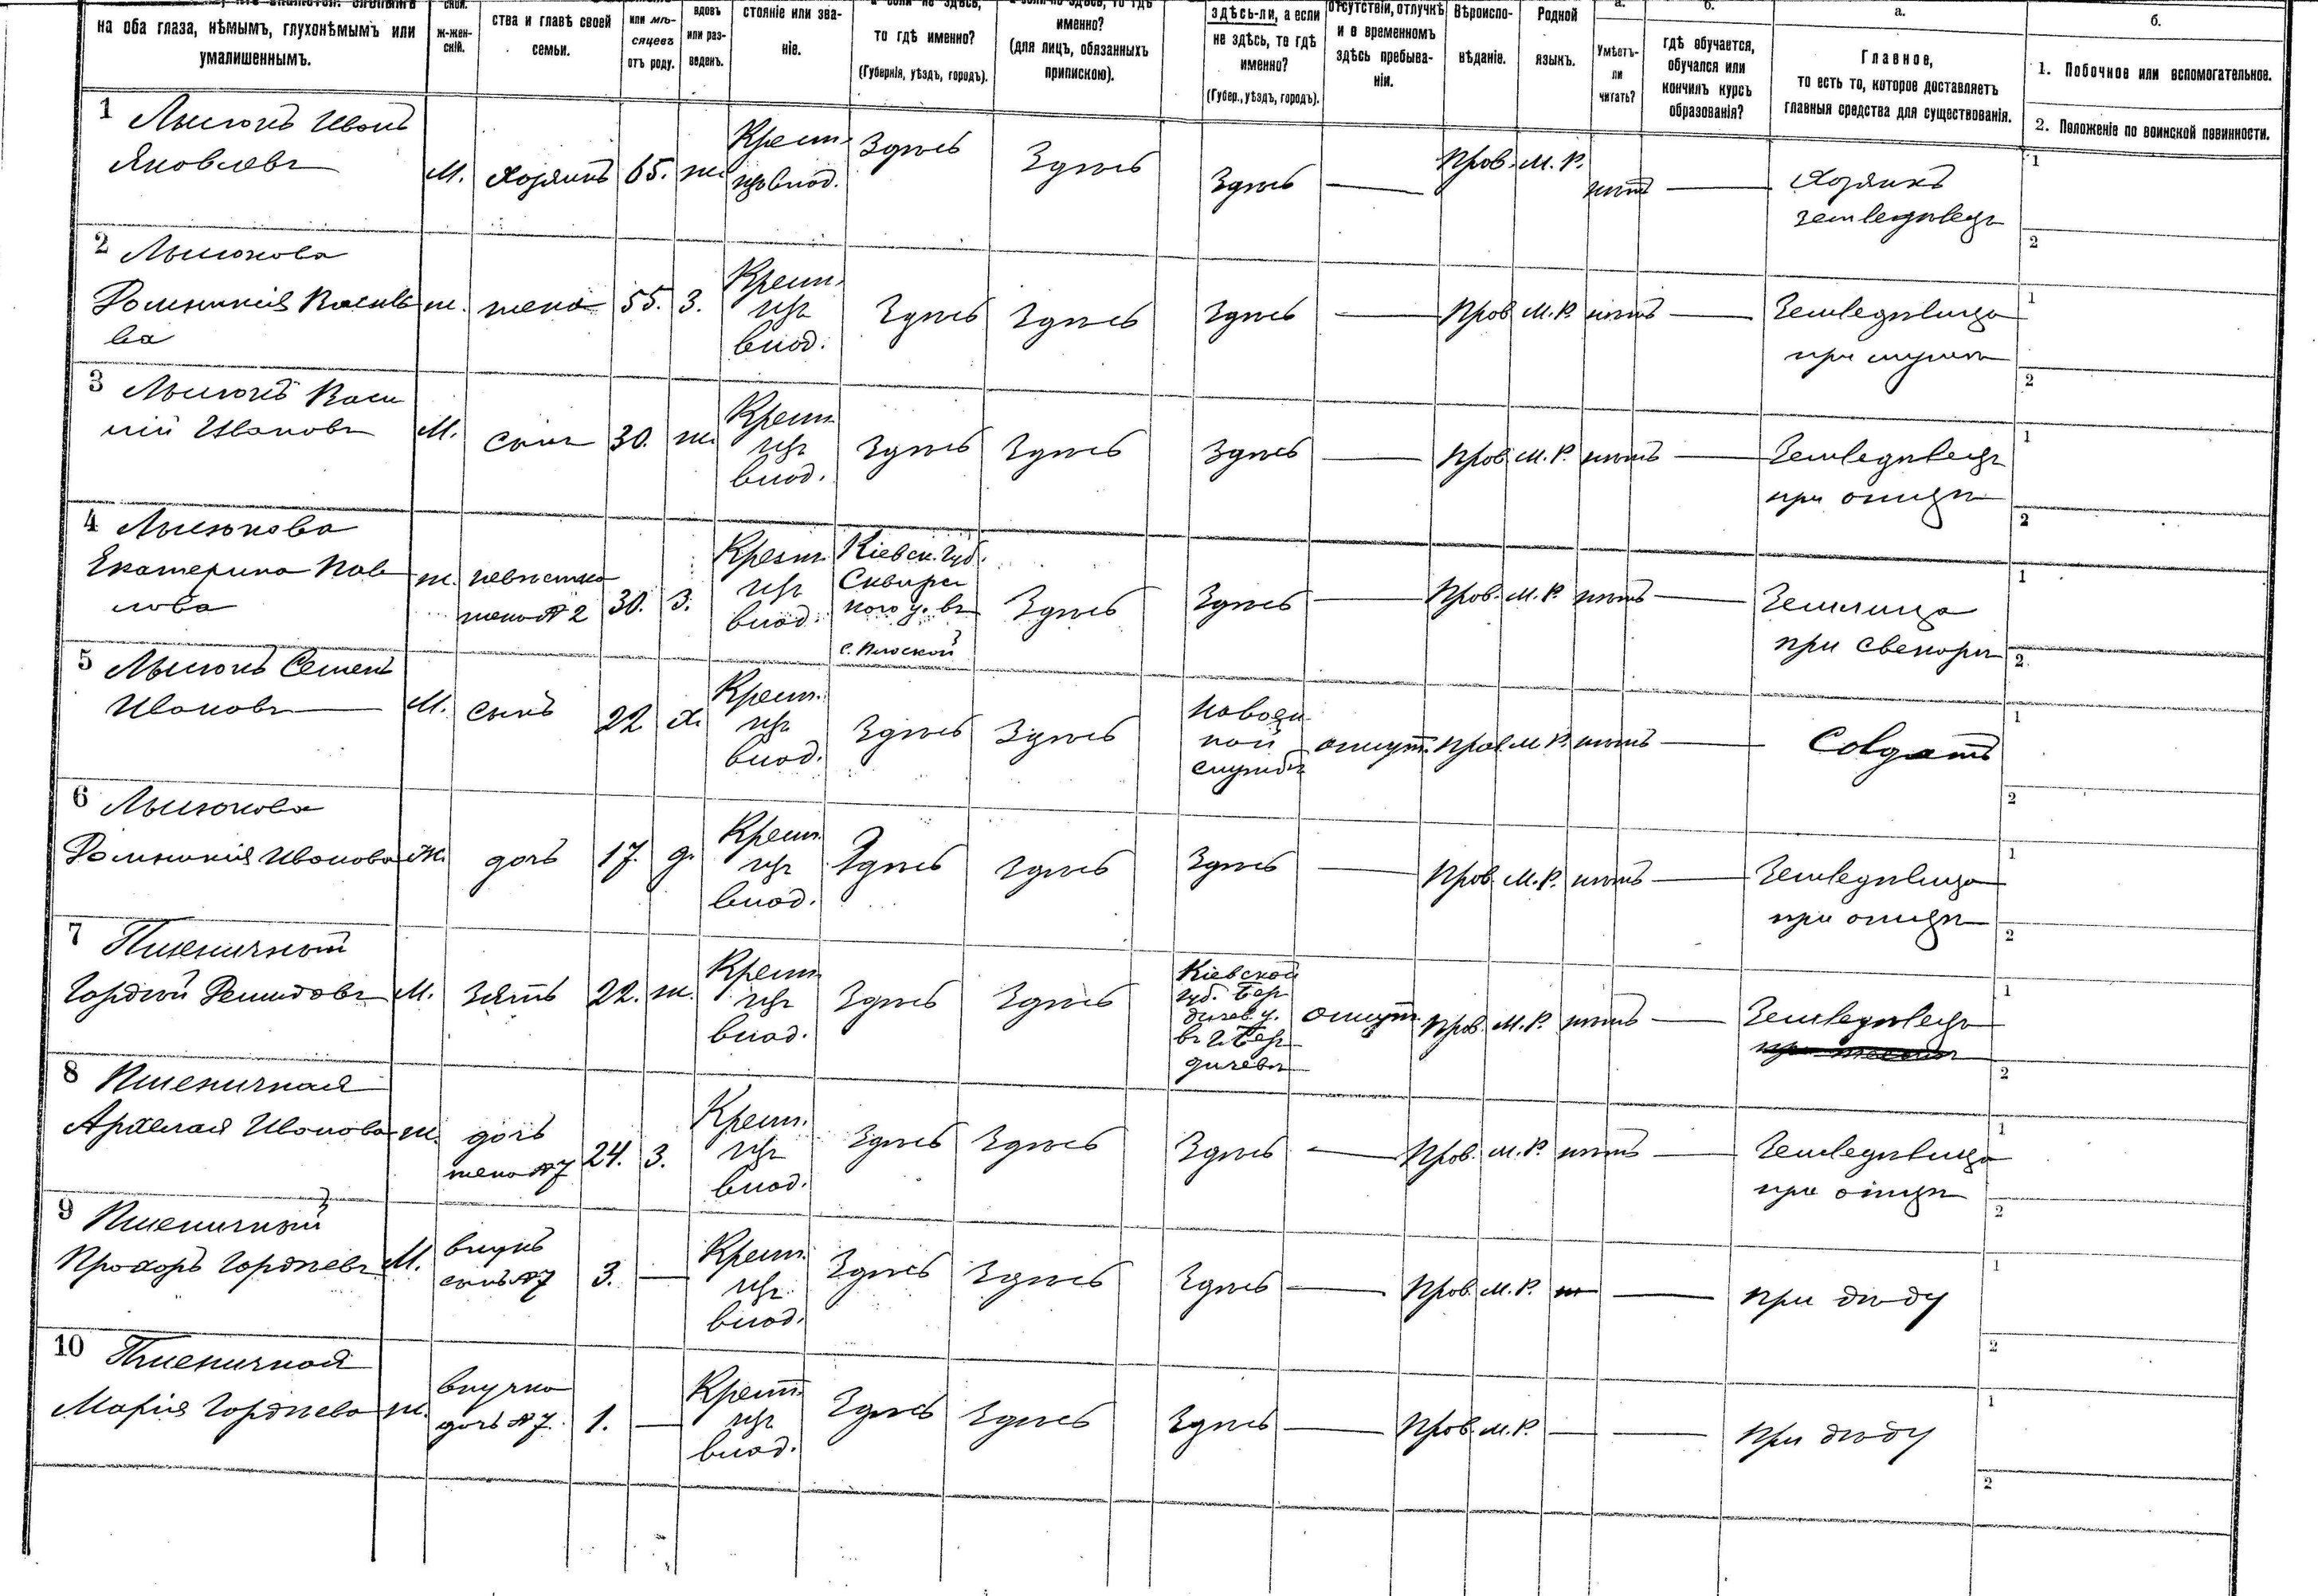 на оба глаза, нѣмымъ, глухонѣмымъ или умалишеннымъ.
ж-жен-скій.
ства и главѣ своей семьи.
или мѣ-сяцевъ отъ роду.
вдовъ или раз-веденъ.
стояніе или зва-ніе.
то гдѣ именно?
(Губернія, уѣздъ, городъ).
именно?
(для лицъ, обязанныхъ припискою).
здѣсь-ли, а если не здѣсь, то гдѣ именно?
(Губер., уѣздъ, городъ).
отсутствіи, отлучкѣ и о временномъ здѣсь пребыва-ніи.
Вѣроиспо-вѣданіе.
Родной языкъ.
а.
Умѣетъ-ли читать?
б.
гдѣ обучается, обучался или кончилъ курсъ образованія?
а.
Главное,
то есть то, которое доставляетъ главныя средства для существованія.
б.
1. Побочное или вспомогательное.
2. Положеніе по воинской повинности.
1
Иванъ
Яковлевъ
М.
Хозяинъ
65.
ж.
Крест.
Здѣсь
Здѣсь
Здѣсь
—
Прав.
М. Р.
нѣтъ
—
Хозяинъ
земледѣлецъ
1
2
2
ж.
жена
55.
З.
Крест.
Здѣсь
Здѣсь
Здѣсь
—
Прав
М. Р.
нѣтъ
—
Земледѣлица
при мужѣ
1
2
3
Васи
лій Ивановъ
М.
сынъ
30.
ж.
Крест.
Здѣсь
Здѣсь
Здѣсь
—
Прав
М. Р.
нѣтъ
—
Земледѣлецъ
при отцѣ
1
2
4
Екатерина Пав
лова
ж.
невѣстка
жена № 2
30.
З.
Крест.
Кіевск. губ.
Сквирс
кого у. въ
с. Плоской
Здѣсь
Здѣсь
—
Прав.
М. Р.
нѣтъ
—
при свекорѣ
1
2
5
Семенъ
Ивановъ
М.
сынъ
22
Х.
Крест.
Здѣсь
Здѣсь
на воен
ной
службѣ
отсут.
Прав
М. Р.
нѣтъ
—
Солдатъ
1
2
6
Домникія Иванова
ж.
дочь
17.
д.
Крест.
Здѣсь
Здѣсь
Здѣсь
—
Прав.
М. Р.
нѣтъ
—
Земледѣлица
при отцѣ
1
2
7
Пшеничный
Гордѣй Демидовъ
М.
Зять
22.
ж.
Крест.
Здѣсь
Здѣсь
Кіевской
губ. Бер
дичев. у.
въ г. Бер
дичевѣ
отсут.
Прав.
М. Р.
нѣтъ
—
Земледѣлецъ
1
2
8
Пшеничная
Иванова
ж.
дочь
жена № 7
24.
З.
Крест.
Здѣсь
Здѣсь
Здѣсь
—
Прав.
М. Р.
нѣтъ
—
Земледѣлица
при отцѣ
1
2
9
Пшеничный
Прохоръ Гордѣевъ
М.
внукъ
сынъ № 7
3.
—
Крест.
Здѣсь
Здѣсь
Здѣсь
—
Прав.
М. Р.
—
при дѣду
1
2
10
Пшеничная
Марія Гордѣева
ж.
внучка
дочь № 7.
1.
—
Крест.
Здѣсь
Здѣсь
Здѣсь
—
Прав.
М. Р.
—
—
при дѣду
1
2